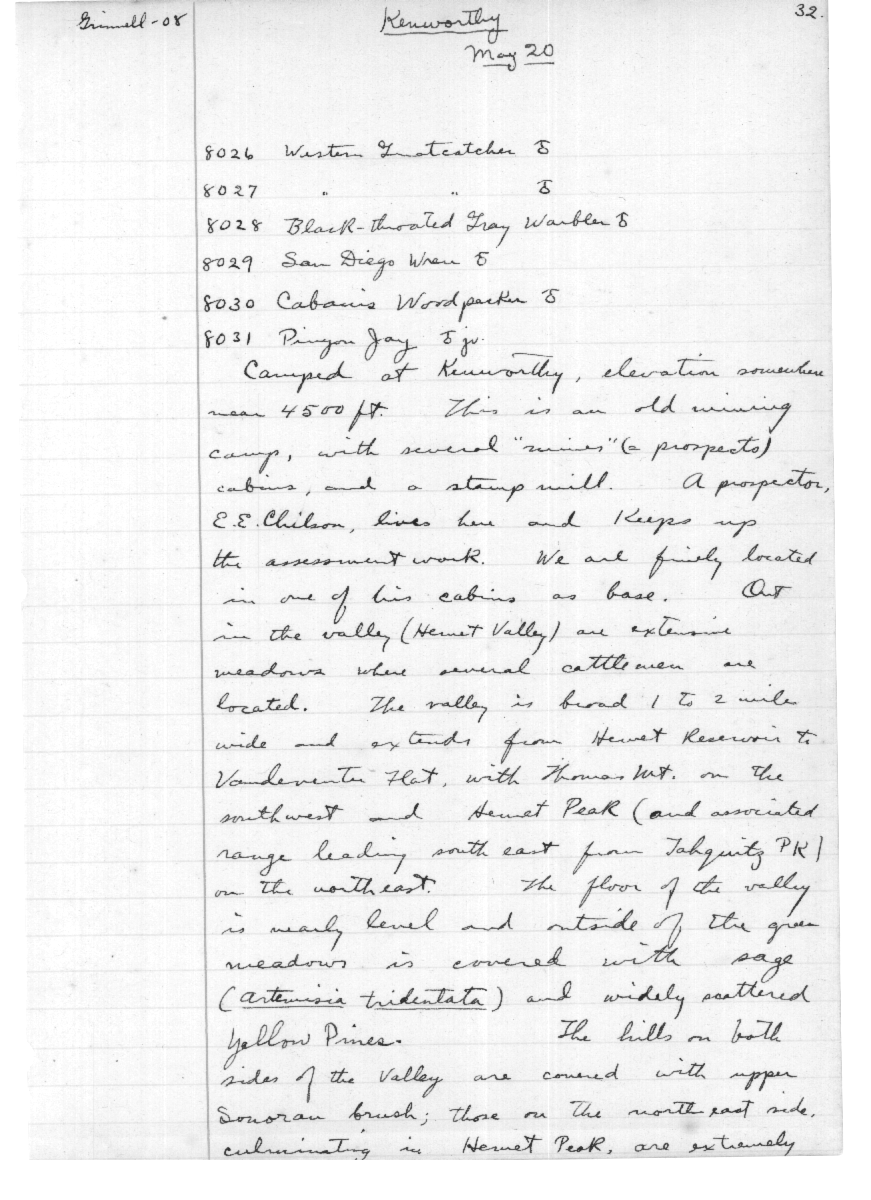 Grinnell-08
Kenworthy
32.
May 20
8026 Western Gnatcatcher ♂
8027 " " ♂
8028 Black-throated Gray Warbler ♂
8029 San Diego Wren ♂
8030 Cabanis Woodpecker ♂
8031 Pinyon Jay ♂ jv.
Camped at Kenworthy, elevation somewhere
near 4500 ft. This is an old mining
camp, with several "mines" (= prospects)
cabins, and a stamp mill. A prospector,
E.E. Chilson, lives here and keeps up
the assessment work. We are finely located
in one of his cabins as base. Out
in the valley (Hemet Valley) are extensive
meadows where several cattlemen are
located. The valley is broad 1 to 2 miles
wide and extends from Hemet Reservoir to
Vandeventer Flat, with Thomas Mt. on the
southwest and Hemet Peak (and associated
range leading south east from Tahquitz PK)
on the northeast. The floor of the valley
is nearly level and outside of the green
meadows is covered with sage
(Artemisia tridentata) and widely scattered
Yellow Pines. The hills on both
sides of the Valley are covered with upper
Sonoran brush; those on the north east side,
culminating in Hemet Peak, are extremely